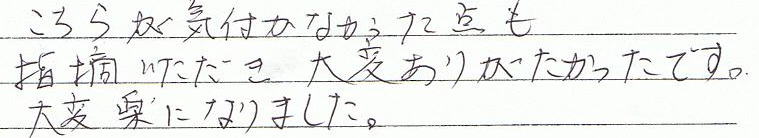 こちらが気付かなかった点も
指摘いただき大変ありがたかったです。
大変楽になりました。